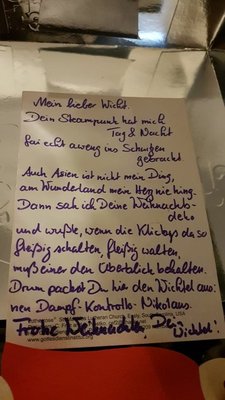 Mein lieber Wicht.
Dein Steampunk hat mich
Tag & Nacht
fai echt aweng ins Schwitzen
gebracht.
Auch Asien ist nicht mein Ding,
am Wunderland mein Herz nie hing.
Dann sah ich Deine Weihnachts-
deko
und wußte, wenn die Klickys da so
fleißig schalten, fleißig walten,
muß einer den Überblick behalten.
Drum packst Du hier den Wichtel aus:
nen Dampf-Kontroll-Nikolaus.
Frohe Weihnachten, Dein
Wichtel!
Lutheran Church, USA
www.gottesdienstinstitut.org